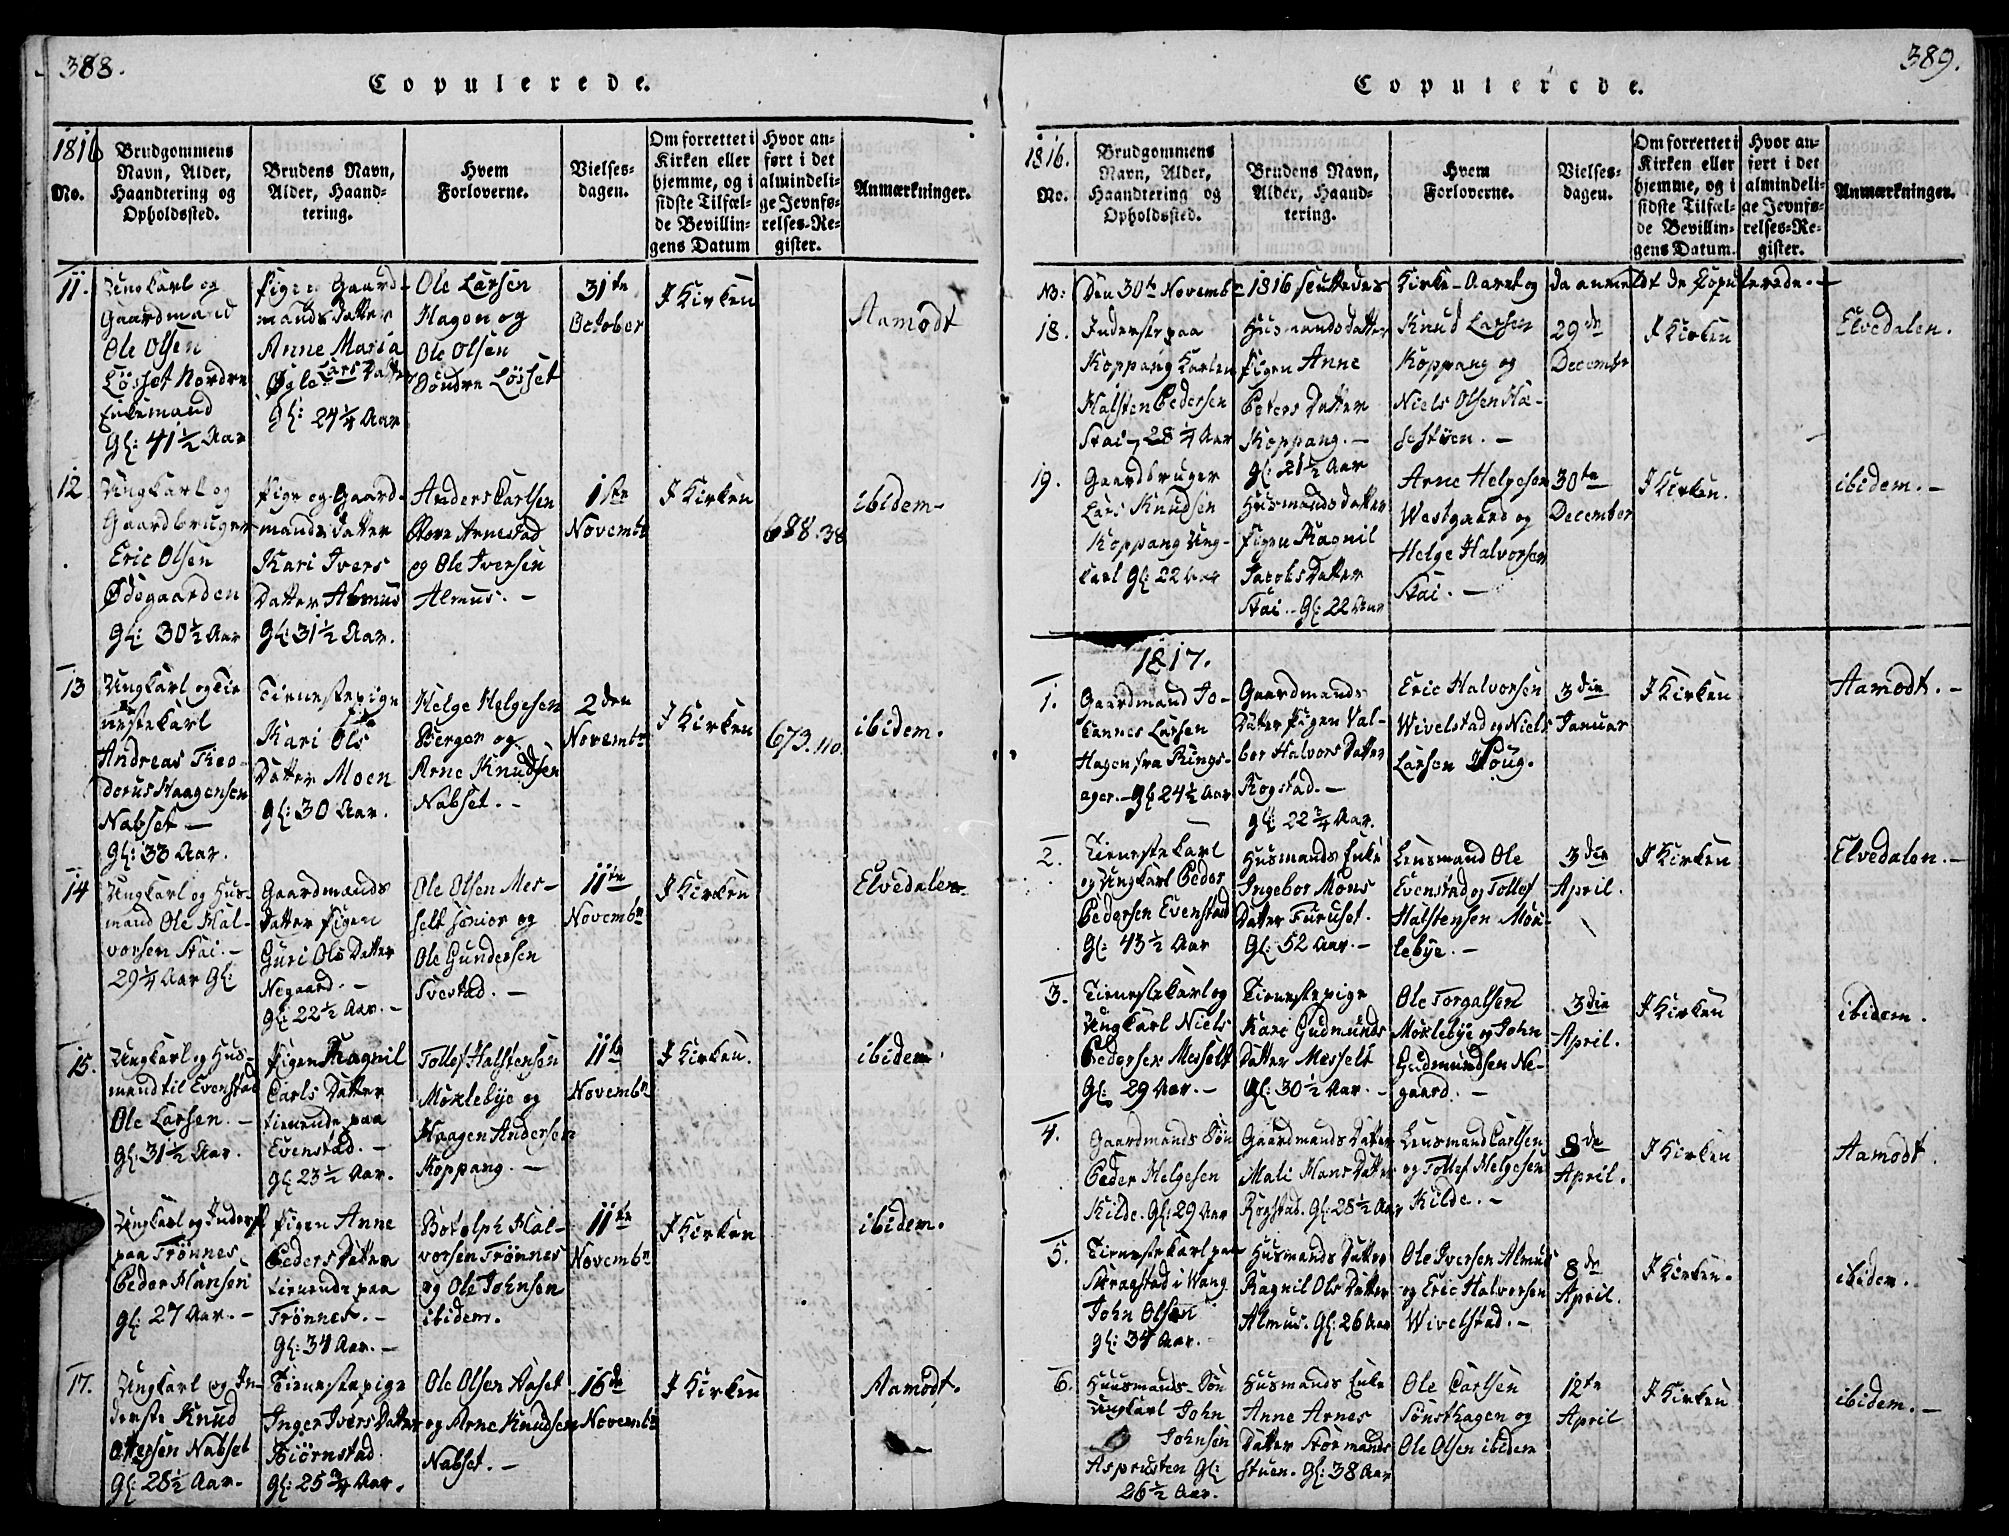 388.
Copulerede.
1816
No.
Brudgommens
Navn, Alder,
Haandtering og
Opholdssted.
Brudens Navn,
Alder, Haand-
tering.
Hvem
Forloverne.
Vielses-
dagen.
Om forrettet i
Kirken eller
hjemme, og i
sidste Tilfæl-
de Bevillin-
gens Datum
Hvor an-
ført i det
almindeli-
ge Jevnfø-
relses-Re-
gister.
Anmærkninger.
11.
Ungkarl og
Gaardmand
Ole Olsen
Løsset Nordre
Enkemand
Gl: 41½ Aar
Pige Gaard-
mands Datter
Anne Maria
Lars Datter
Øgle
Gl: 24¼ Aar
Ole Larsen
Hagen og
Ole Olsen
Søndre Løsset
31te
October
I Kirken
Aamodt
12.
Ungkarl og
Gaardbruger
Eric Olsen
Ødegaarden
Gl: 30½ Aar
Pige og Gaard-
mands Datter
Kari Ivers
Datter Almus
Gl: 31½ Aar.
Anders Carlsen
Store Arnestad
og Ole Iversen
Almus. -
1ste
Novembr
I Kirken
688.38
ibidem -
13
Ungkarl og Tie-
nestekarl
Andreas Theo-
dorus Haagensen
Nabset -
Gl: 33 Aar.
Tienestepige
Kari Ols
Datter Moen
Gl: 30 Aar.
Helge Helgesen
Berger og
Arne Knudsen
Nabset. -
2den
Novembr
I Kirken
673.110.
ibidem.
14
Ungkarl og Hus-
mand Ole Hal-
vorsen Stai. -
29¼ Aar Gl:
Gaardmands
Datter Pigen
Guri Ols Datter
Negaard. -
Gl: 22½ Aar. -
Ole Olsen Mes-
selt Senior og
Ole Gundersen
Svestad. -
11te
Novembr
I Kirken
Elvedalen
15.
Ungkarl og Hus-
mand til Evenstad
Ole Larsen. -
Gl: 31½ Aar.
Pigen Ragnil
Carls Datter
tienende paa
Evenstad. -
Gl: 23½ Aar.
Tollef Halstensen
Moxlebye og
Haagen Andersen
Koppang. -
11te
Novembr
I Kirken.
ibidem
Ungkarl og Inderst
paa Trønnes
Peder Hansen
Gl: 27 Aar. -
Pigen Anne
Peders Datter
tienende paa
Trønnes. -
Gl: 34 Aar. -
Botolph Hal-
vorsen Trønnes
og Ole Johnsen
ibidem.
11te
Novembr
I Kirken
ibidem.
17.
Ungkarl og In-
derste Knud
Ottersen Nabset
Gl: 28½ Aar.
Tienestepige
Inger Ivers Datter
Biörnstad
Gl: 25¾ Aar.
Ole Olsen Aaset
og Arne Knudsen
Nabset. -
16de
Novembr
I Kirken
Aamodt.
389.
Copulerede.
1816.
No.
Brudgommens
Navn, Alder,
Haandtering og
Opholdssted.
Brudens Navn,
Alder, Haand-
tering.
Hvem
Forloverne.
Vielses-
dagen.
Om forrettet i
Kirken eller
hjemme, og i
sidste Tilfæl-
de Bevillin-
gens Datum.
Hvor an-
ført i det
almindeli-
ge Jevnfø-
relses-Re-
gister.
Anmærkninger.
NB: Den 30te Novembr 1816 sluttedes Kirke-Aaret og da anmeldt de Copulerede. -
18.
Inderste paa
Koppang Karlen
Halsten Pedersen
Stai - 28¼ Aar
Husmands datter
Pigen Anne
Peters Datter
Koppang. -
Gl: 21½ Aar
Knud Larsen
Koppang og
Niels Olsen Ha-
sestuen. -
29de
Decembr
I Kirken
Elvedalen.
19.
Gaardbruger
Lars Knudsen
Koppang Ung-
karl Gl: 22 Aar
Husmands datter
Pigen Ragnil
Jacobs Datter
Stai. - Gl: 22 Aar
Arne Helgesen
Westgaard og
Helge Halvorsen
Stai. -
30te
December
I Kirken.
ibidem. -
1817.
1.
Gaardmand Jo-
hannes Larsen
Hagen fra Rings-
ager. - Gl: 24½ Aar
Gaardmands
Datter Pigen Val-
bor Halvors Datter
Rogstad. -
Gl: 22¾ Aar.
Eric Halvorsen
Wivelstad og Niels
Larsen Houg.
3die
Januar
I Kirken
Aamodt. -
2.
Tienestekarl
og Ungkarl Peder
Pedersen Evenstad
Gl: 43½ Aar
Husmands Enke
Ingebor Mons
Datter Furuset.
Gl: 52 Aar. -
Lensmand Ole
Evenstad og Tollef
Halstensen Mox-
lebye. -
3die
April.
I Kirken
Elvedalen. -
3.
Tienestekarl og
Ungkarl Niels
Pedersen Messelt
Gl: 29 Aar. -
Tienestepige
Kari Gudmunds
Datter Messelt
Gl: 30½ Aar. -
Ole Torgalsen
Moxlebye og John
Gudmundsen Ne-
gaard. -
3die
April.
I Kirken
ibidem.
4.
Gaardmands Søn
Peder Helgesen
Kilde. Gl: 29 Aar
Gaardmands Datter
Mali Hans Datter
Rogstad. Gl: 28½ Aar
Lensmand Carlsen
og Tollef Helgesen
Kilde. -
8de
April.
I Kirken
Aamodt.
5.
Tienestekarl paa
Skragstad i Wang
John Olsen
Gl: 34 Aar.
Husmands Datter
Ragnil Ols Datter
Almus. Gl: 26 Aar
Ole Iversen Almus
og Eric Halvorsen
Wivelstad. -
8de
April.
I Kirken.
ibidem.
6.
Huusmands-Søn
Ungkarl John
Johnsen
Asprusten Gl:
26½ Aar.
Husmands Enke
Anne Arnes
Datter Stormands
stuen. Gl: 38 Aar
Ole Carlsen
Sønsthagen og
Ole Olsen ibidem
12te
April
I Kirken
ibidem. -